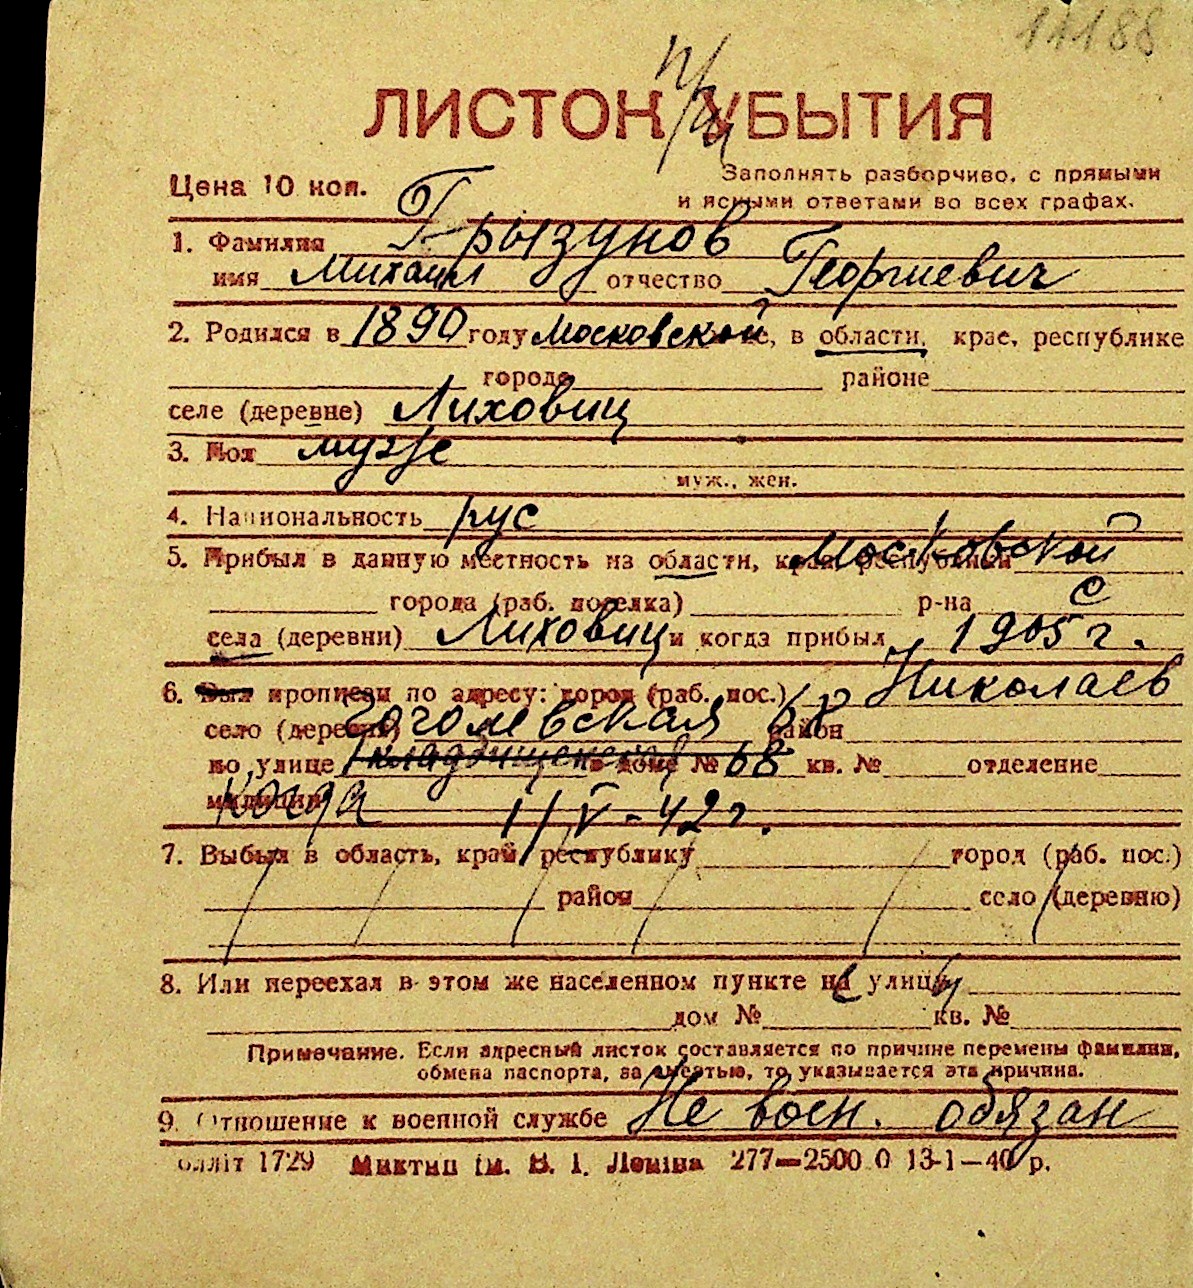 11188
ЛИСТОК УБЫТИЯ
Цена 10 коп.
Заполнять разборчиво, с прямыми
и ясными ответами во всех графах.
1. Фамилия Грызунов
имя Михаил отчество Георгиевич
2. Родился в 1890 году Московской, в области, крае, республике
городе районе
селе (деревне) Лиховиц
3. Пол мужс
муж., жен.
4. Национальность рус
5. Прибыл в данную местность из области, края, республики Московской
города (раб. поселка) р-на с
села (деревни) Лиховиц и когда прибыл 1905 г.
6. Был прописан по адресу: город (раб. пос.) Николаев
село (деревня) Гоголевская 68 район
по улице в доме № 68 кв. № отделение
милиции Когда 1/V-42г.
7. Выбыл в область, край, республику город (раб. пос.)
район село (деревню)
8. Или переехал в этом же населенном пункте на улицу
дом № кв. №
Примечание. Если адресный листок составляется по причине перемены фамилии,
обмена паспорта, за смертью, то указывается эта причина.
9. Отношение к военной службе Не воен. обязан
олліт 1729 Миктип ім. В. І. Леніна 277—2500 0 13-1—40 р.